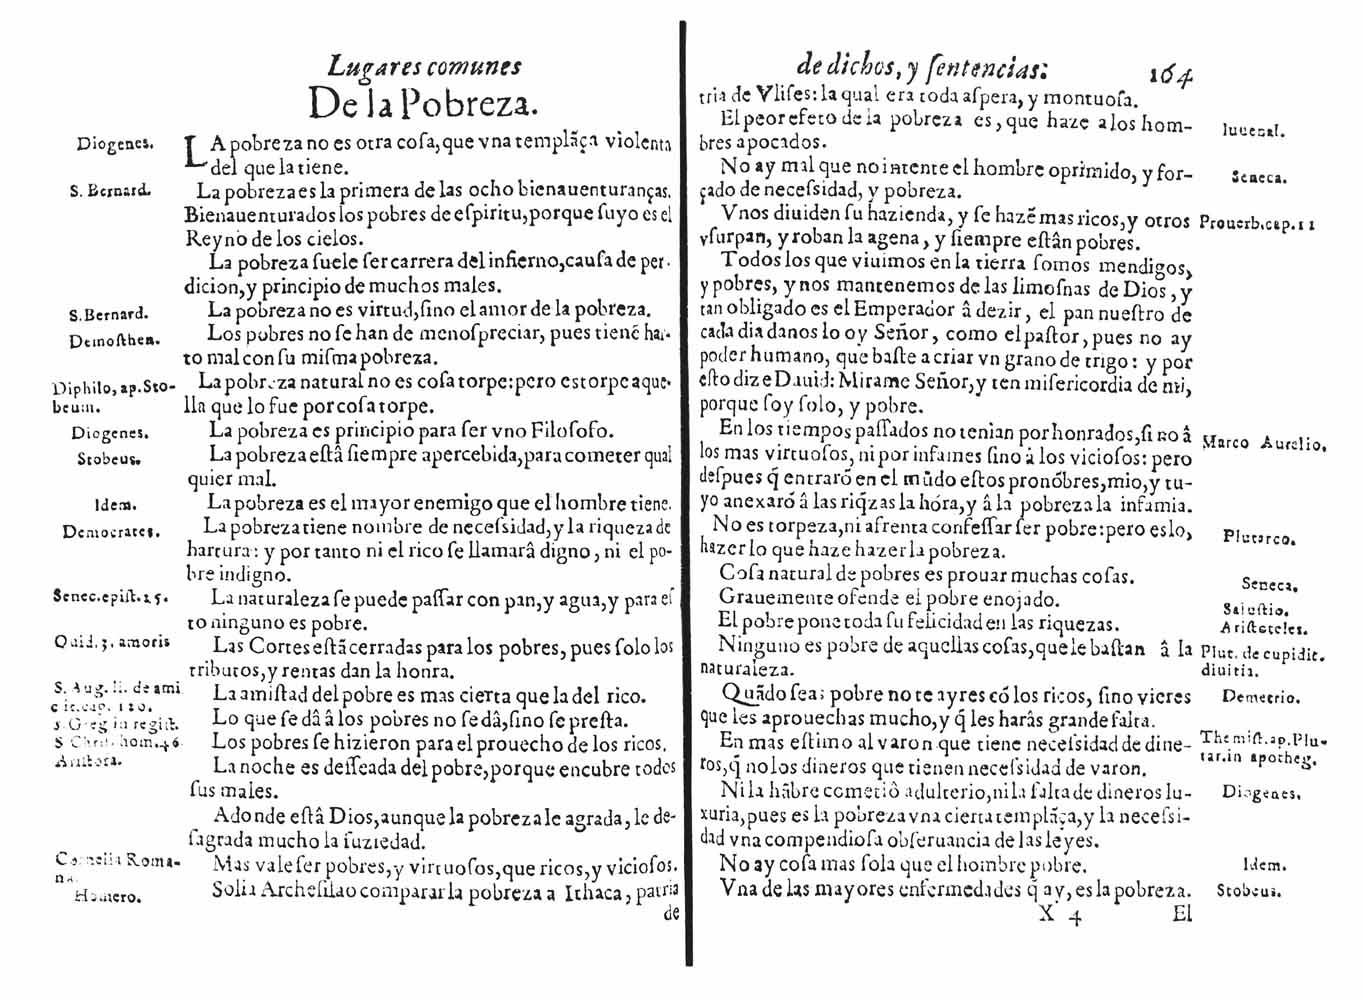 Lugares comunes
De la Pobreza.
Diogenes.
LA pobreza no es otra coſa, que vna templãça violenta
del que la tiene.
S. Bernard.
La pobreza es la primera de las ocho bienauenturanças.
Bienauenturados los pobres de eſpiritu, porque ſuyo es el
Reyno de los cielos.
La pobreza ſuele ſer carrera del infierno, cauſa de per-
dicion, y principio de muchos males.
S. Bernard.
La pobreza no es virtud, ſino el amor de la pobreza.
Demoſthen.
Los pobres no ſe han de menoſpreciar, pues tienẽ har-
to mal con ſu miſma pobreza.
Diphilo, ap. Sto-
beum.
La pobreza natural no es coſa torpe: pero es torpe aque-
lla que lo fue por coſa torpe.
Diogenes.
La pobreza es principio para ſer vno Filoſofo.
Stobeus.
La pobreza eſtâ ſiempre apercebida, para cometer qual
quier mal.
Idem.
La pobreza es el mayor enemigo que el hombre tiene.
Democrates.
La pobreza tiene nombre de neceſsidad, y la riqueza de
hartura: y por tanto ni el rico ſe llamarâ digno, ni el po-
bre indigno.
Senec. epiſt. 25.
La naturaleza ſe puede paſſar con pan, y agua, y para eſ
to ninguno es pobre.
Ouid. 3. amoris
Las Cortes eſtã cerradas para los pobres, pues ſolo los
tributos, y rentas dan la honra.
S. Aug. li. de ami
cit. cap.
La amiſtad del pobre es mas cierta que la del rico.
S. Greg in regiſt.
Lo que ſe dâ â los pobres no ſe dâ, ſino ſe preſta.
S Chriſ. hom. 46
Los pobres ſe hizieron para el prouecho de los ricos.
La noche es deſſeada del pobre, porque encubre todos
ſus males.
Adonde eſtâ Dios, aunque la pobreza le agrada, le de-
ſagrada mucho la ſuziedad.
Cornelia Roma-
na.
Mas vale ſer pobres, y virtuoſos, que ricos, y vicioſos.
Homero.
Solia Archeſilao comparar la pobreza a Ithaca, patria
de
de dichos, y ſentencias: 164
tria de Vliſes: la qual era toda aſpera, y montuoſa.
El peor efeto de la pobreza es, que haze a los hom-
bres apocados.
Iuuenal.
No ay mal que no intente el hombre oprimido, y for-
çado de neceſsidad, y pobreza.
Seneca.
Vnos diuiden ſu hazienda, y ſe hazẽ mas ricos, y otros
vſurpan, y roban la agena, y ſiempre eſtân pobres.
Prouerb. cap. 11
Todos los que viuimos en la tierra ſomos mendigos,
y pobres, y nos mantenemos de las limoſnas de Dios, y
tan obligado es el Emperador â dezir, el pan nueſtro de
cada dia danos lo oy Señor, como el paſtor, pues no ay
poder humano, que baſte a criar vn grano de trigo: y por
eſto dize Dauid: Mirame Señor, y ten miſericordia de mi,
porque ſoy ſolo, y pobre.
En los tiempos paſſados no tenian por honrados, ſi no â
los mas virtuoſos, ni por infames ſino â los vicioſos: pero
deſpues q̃ entrarõ en el mũdo eſtos pronõbres, mio, y tu-
yo anexarõ â las riq̃zas la hõra, y â la pobreza la infamia.
Marco Aurelio.
No es torpeza, ni afrenta confeſſar ſer pobre: pero es lo,
hazer lo que haze hazer la pobreza.
Plutarco.
Coſa natural de pobres es prouar muchas coſas.
Seneca.
Grauemente ofende el pobre enojado.
Saluſtio.
El pobre pone toda ſu felicidad en las riquezas.
Ariſtoteles.
Ninguno es pobre de aquellas coſas, que le baſtan â la
naturaleza.
Plut. de cupidit.
diuitia.
Quãdo ſeas pobre no te ayres cõ los ricos, ſino vieres
que les aprouechas mucho, y q̃ les harâs grande falta.
Demetrio.
En mas eſtimo al varon que tiene neceſsidad de dine-
ros, q̃ no los dineros que tienen neceſsidad de varon.
Themiſt. ap. Plu-
tar. in apotheg.
Ni la hãbre cometiò adulterio, ni la falta de dineros lu-
xuria, pues es la pobreza vna cierta templãça, y la neceſsi-
dad vna compendioſa obſeruancia de las leyes.
Diogenes.
No ay coſa mas ſola que el hombre pobre.
Idem.
Vna de las mayores enfermedades q̃ ay, es la pobreza.
Stobeus.
X 4 El